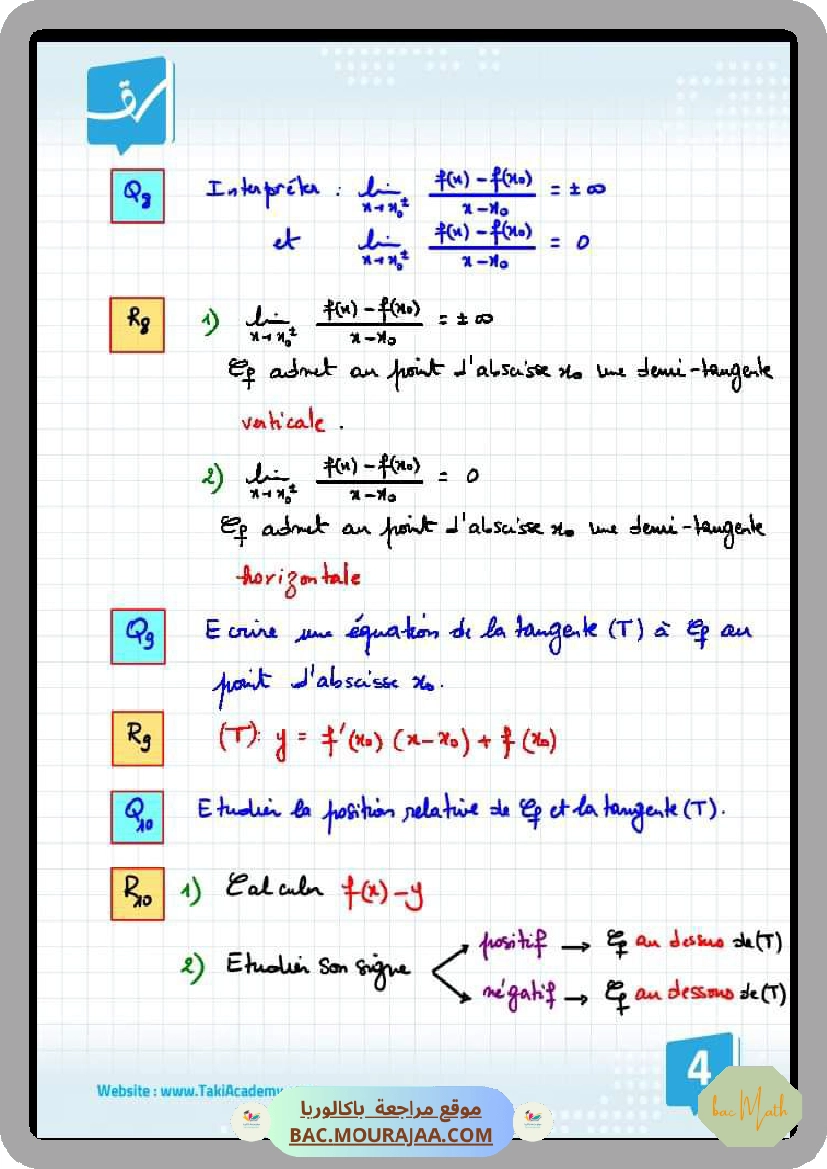 Q8 Interpréter : lim x→x₀± (f(x) – f(x₀))/(x – x₀) = ± ∞
et lim x→x₀± (f(x) – f(x₀))/(x – x₀) = 0
R8 1) lim x→x₀± (f(x) – f(x₀))/(x – x₀) = ± ∞
𝒞f admet au point d'abscisse x₀ une demi-tangente
verticale .
2) lim x→x₀± (f(x) – f(x₀))/(x – x₀) = 0
𝒞f admet au point d'abscisse x₀ une demi-tangente
horizontale
Q9 Ecrire une équation de la tangente (T) à 𝒞f au
point d'abscisse x₀.
R9 (T): y = f'(x₀) (x – x₀) + f (x₀)
Q10 Etudier la position relative de 𝒞f et la tangente (T).
R10 1) Calculer f(x) – y
2) Etudier son signe
positif → 𝒞f au dessus de (T)
négatif → 𝒞f au dessous de (T)
4
Website : www.TakiAcademy
bac Math
موقع مراجعة باكالوريا
BAC.MOURAJAA.COM